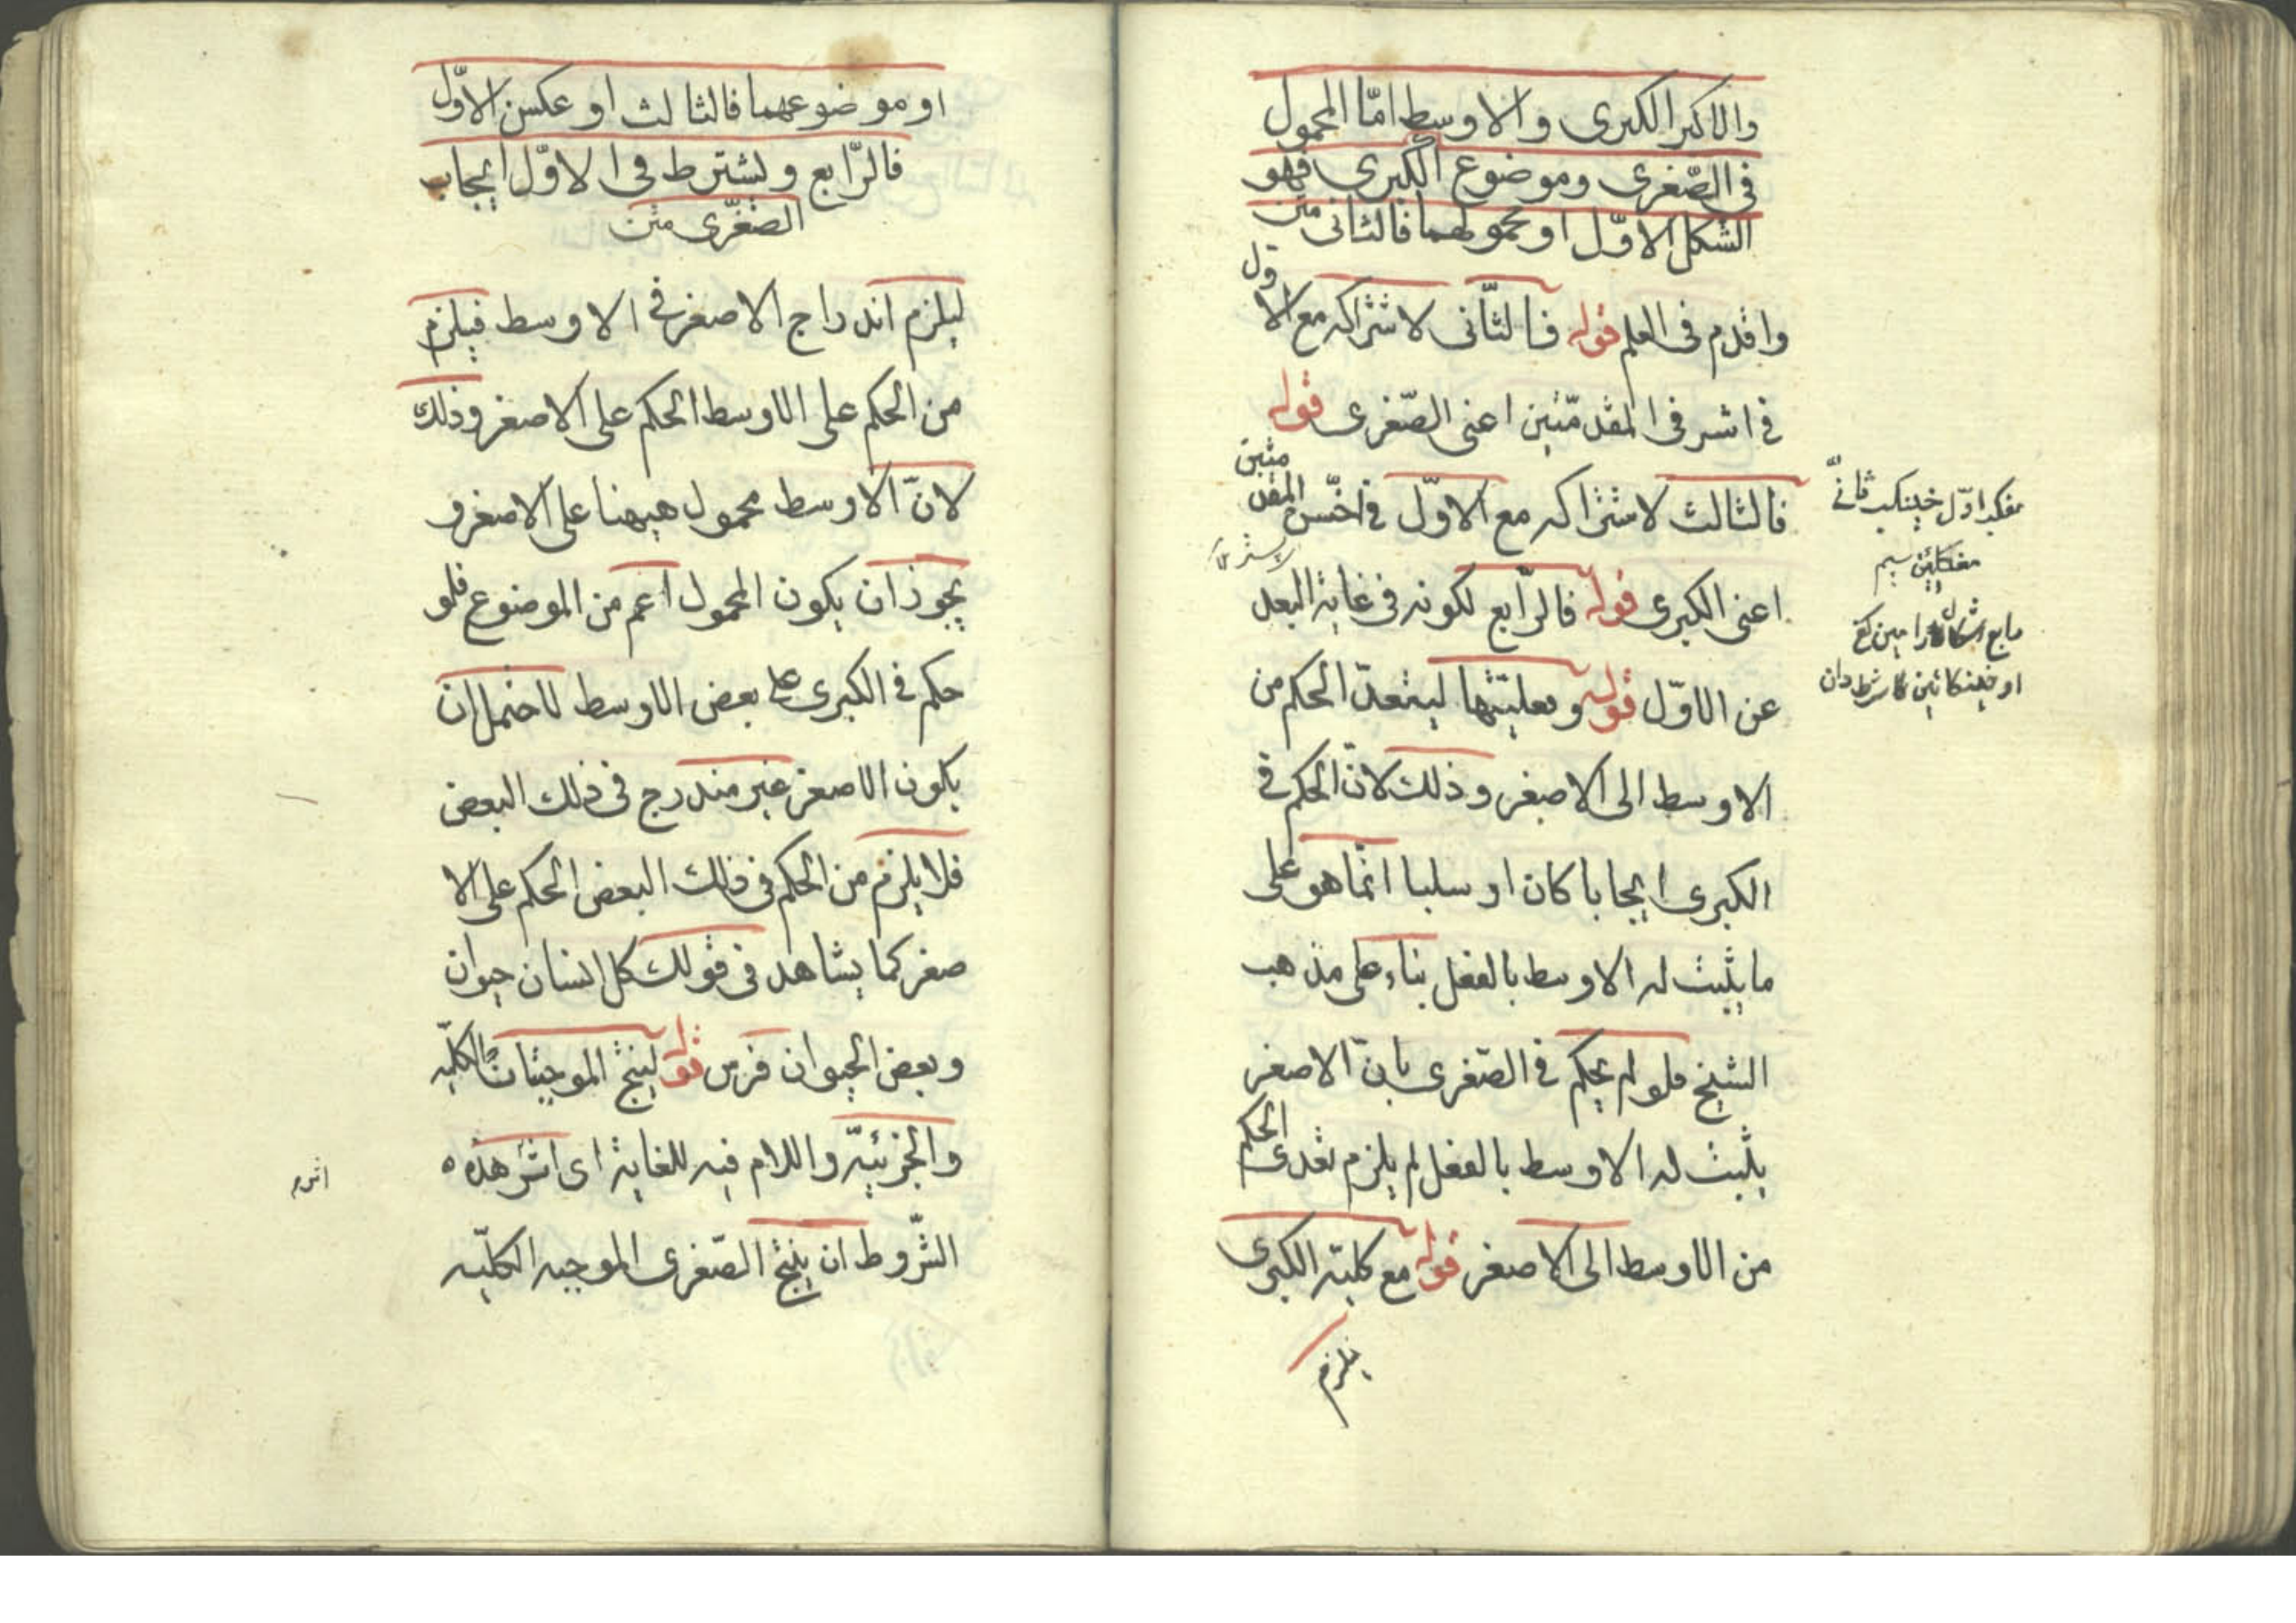 والاكبر الكبرى والاوسط امّا المحمول
فى الصّغرى وموضوع الكبرى فهو
الشكل الاوّل او محمولهما فالثانى متن
واقدم فى العلم قوله فالثّانى لاشتراكه مع الاول
فى اشرف المقدّمتين اعنى الصّغرى قوله
فالثالث لاشتراكه مع الاوّل فى اخسّ المقدمتين
اعنى الكبرى قوله فالرّابع لكونه فى غاية البعد
عن الاوّل قوله وفعليّتها ليتعدّ الحكم من
الاوسط الى الاصغر وذلك لانّ الحكم فى
الكبرى ايجابا كان او سلبا انّما هو على
ما يثبت له الاوسط بالفعل بناء على مذهب
الشيخ فلو لم يحكم فى الصّغرى بانّ الاصغر
يثبت له الاوسط بالفعل لم يلزم تعدى الحكم
من الاوسط الى الاصغر قوله مع كليّة الكبرى
يلزم
او موضوعهما فالثالث او عكس الاوّل
فالرّابع ويشترط فى الاوّل ايجاب
الصّغرى متن
ليلزم اندراج الاصغر فى الاوسط فيلزم
من الحكم على الاوسط الحكم على الاصغر وذلك
لانّ الاوسط محمول هيهنا على الاصغر و
يجوز ان يكون المحمول اعم من الموضوع فلو
حكم فى الكبرى على بعض الاوسط لاحتمل ان
يكون الاصغر غير مندرج فى ذلك البعض
فلا يلزم من الحكم فى ذلك البعض الحكم على الا
صغر كما يشاهد فى قولك كل انسان حيوان
وبعض الحيوان فرس قوله لينتج الموجبتان الكليّه
والجزئيّه واللام فيه للغاية اى اثر هذه
الشّروط ان ينتج الصّغرى الموجبه الكليّه